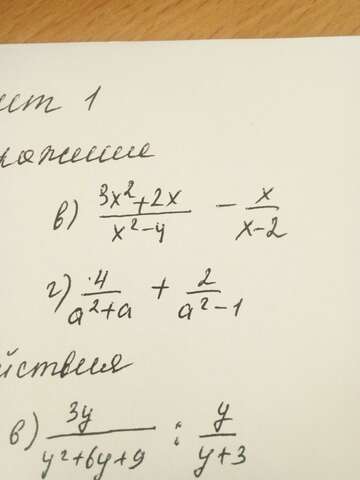 ит 1
ражение
в) (3x²+2x)/(x²-4) - x/(x-2)
г) 4/(a²+a) + 2/(a²-1)
йствия
в) 3y/(y²+6y+9) : y/(y+3)